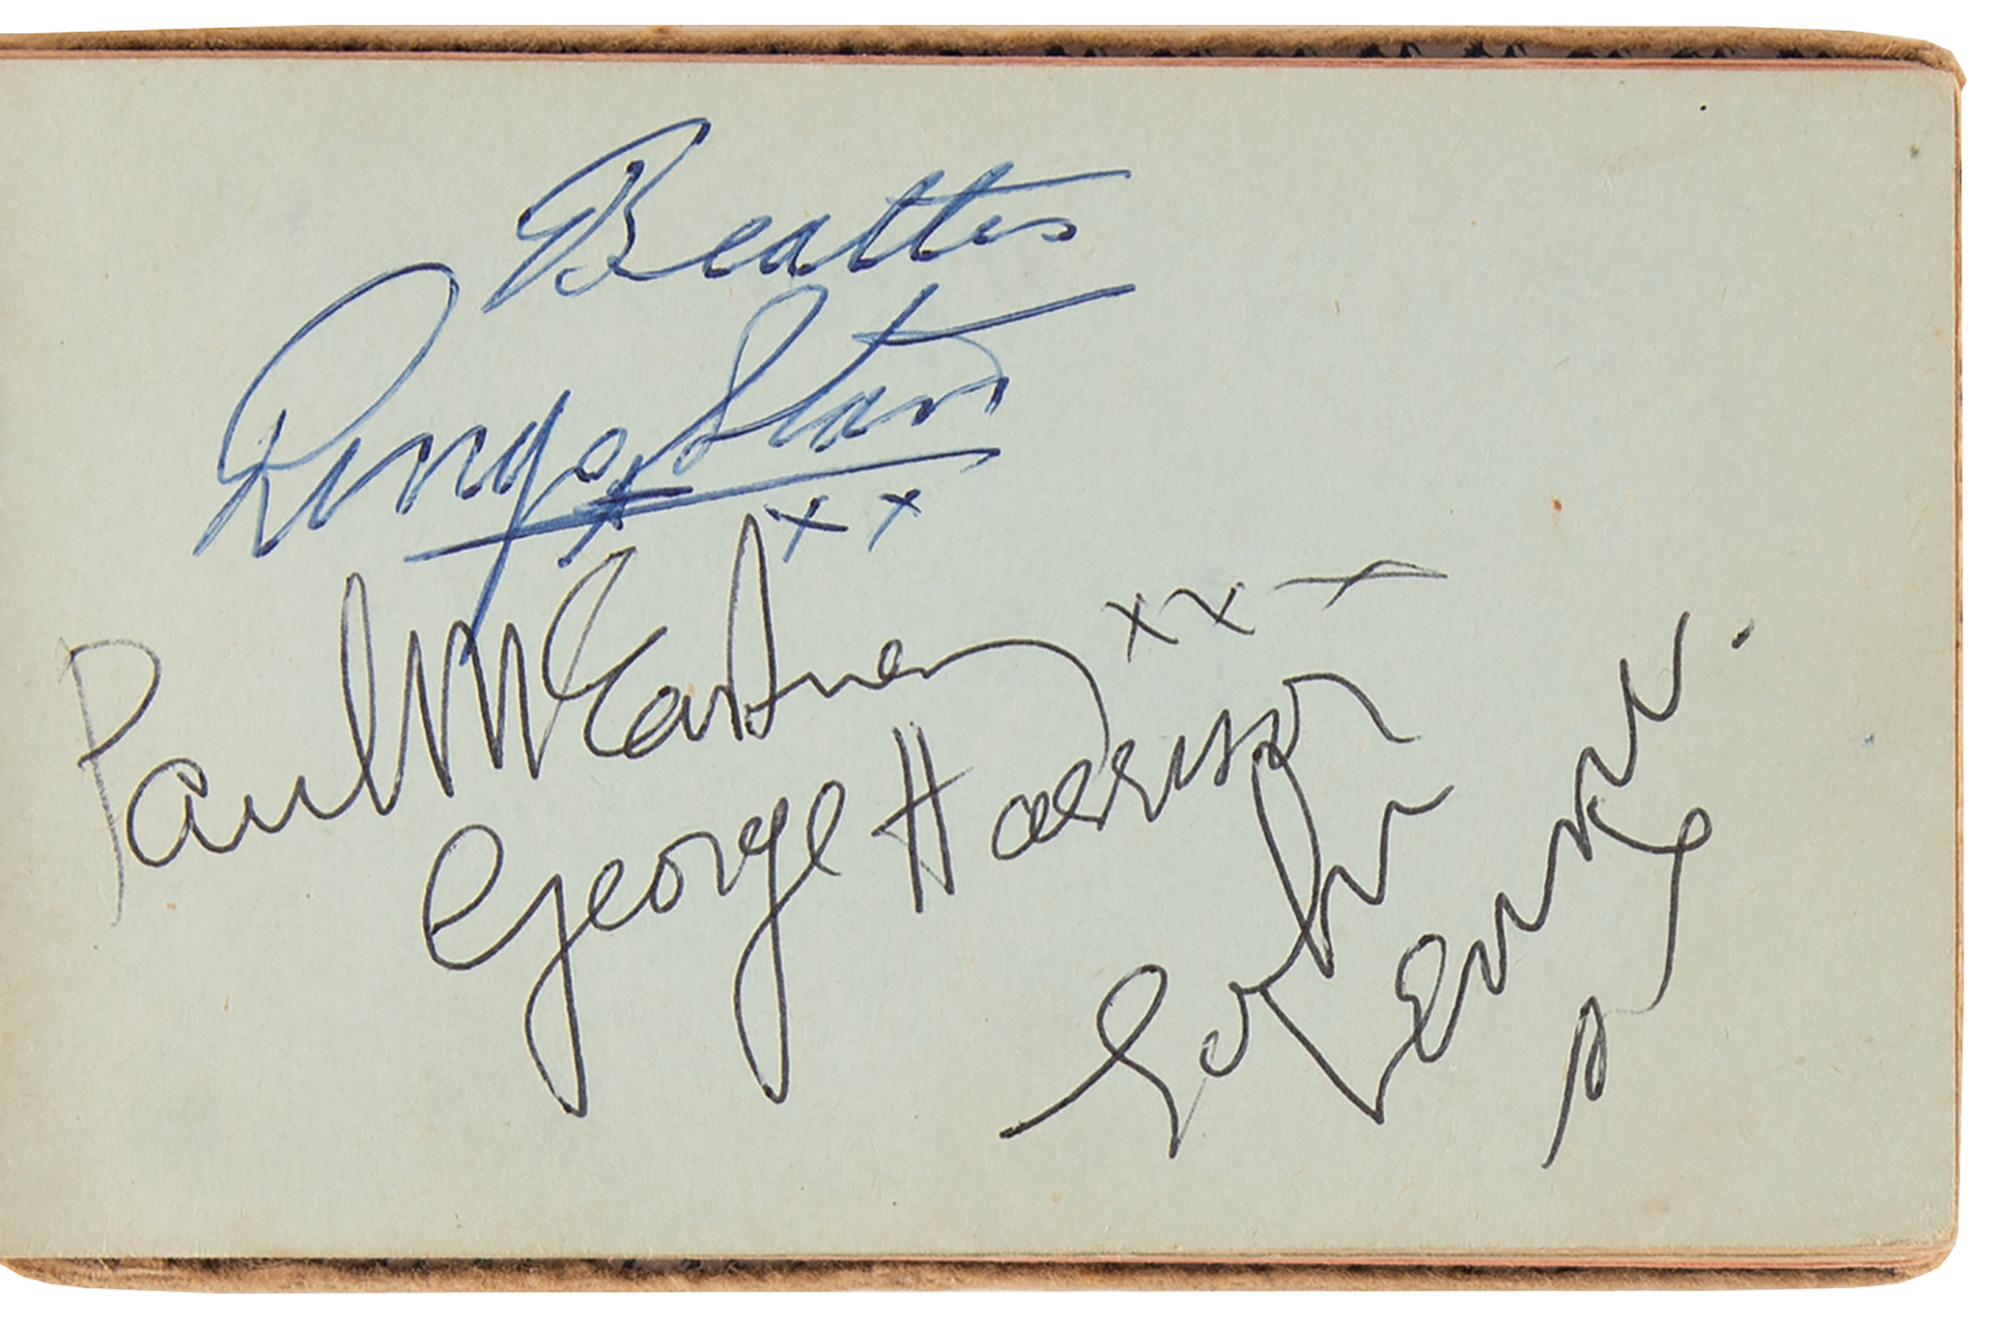 Beatles
Ringo Starr
xxx
Paul McCartney xxx
George Harrison
John Lennon